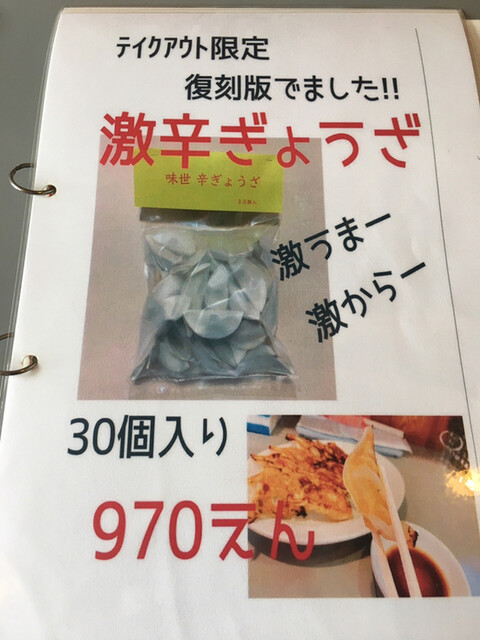 テイクアウト限定
復刻版でました!!
激辛ぎょうざ
味世 辛ぎょうざ
激うまー
激からー
30個入り
970えん